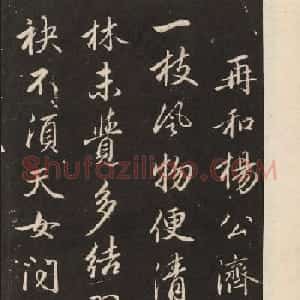 再和楊公濟
一枝風物便清
林未覺多結
袂不須天女問
Shufaziliao.COM